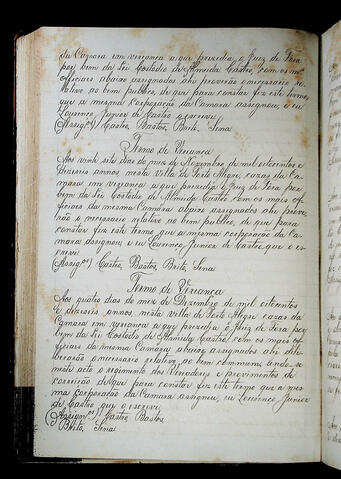 da Camara em vereança a que presidia o Juiz de Fora
por bem da Lei Custodio de Almeida Castro, com os m.ˢ
officiaes abaixo assignados ahi proverão o necessario re-
lativo ao bem publico, de que para constar fiz este termo,
que a mesma corporação da Camara assignou, e eu
Lourenço Junior de Castro o escrevi
(Assig.ᵒˢ) Castro, Bastos, Brito, Sena.
Termo de Vereança
Aos vinte sete dias do mez de Novembro de mil oitocentos e
dizeseis annos, nesta villa de Porto Alegre, cazas da Ca-
mara em vereança a que presidia o Juiz de Fora por
bem da Lei Custodio de Almeida Castro com os mais of-
ficiaes da mesma Camara abaixo assignados ahi prove-
rão o necessario relativo ao bem publico, de que para
constar fiz este termo que a mesma corporação da Ca-
mara assignou, e eu Lourenço Junior de Castro que o es-
crevi
(Assig.ᵒˢ) Castro, Bastos, Brito, Sena
Termo de Vereança
Aos quatro dias do mez de Dezembro de mil oitocentos
e dizeseis annos, nesta villa de Porto Alegre cazas da
Camara em vereança a que presidia o Juiz de Fora por
bem da Lei Custodio de Almeida Castro, com os mais of-
ficiaes da mesma Camara abaixo assignados ahi de-
liberarão o necessario relativo ao bem commum, e
neste acto o regimento dos Vereadores e provimentos de
correição de que para constar fiz este termo que a mes-
ma corporação da Camara assignou, eu Lourenço Junior
de Castro que o escrevi
(Assign.ᵒˢ) Castro Bastos
Brito, Sena